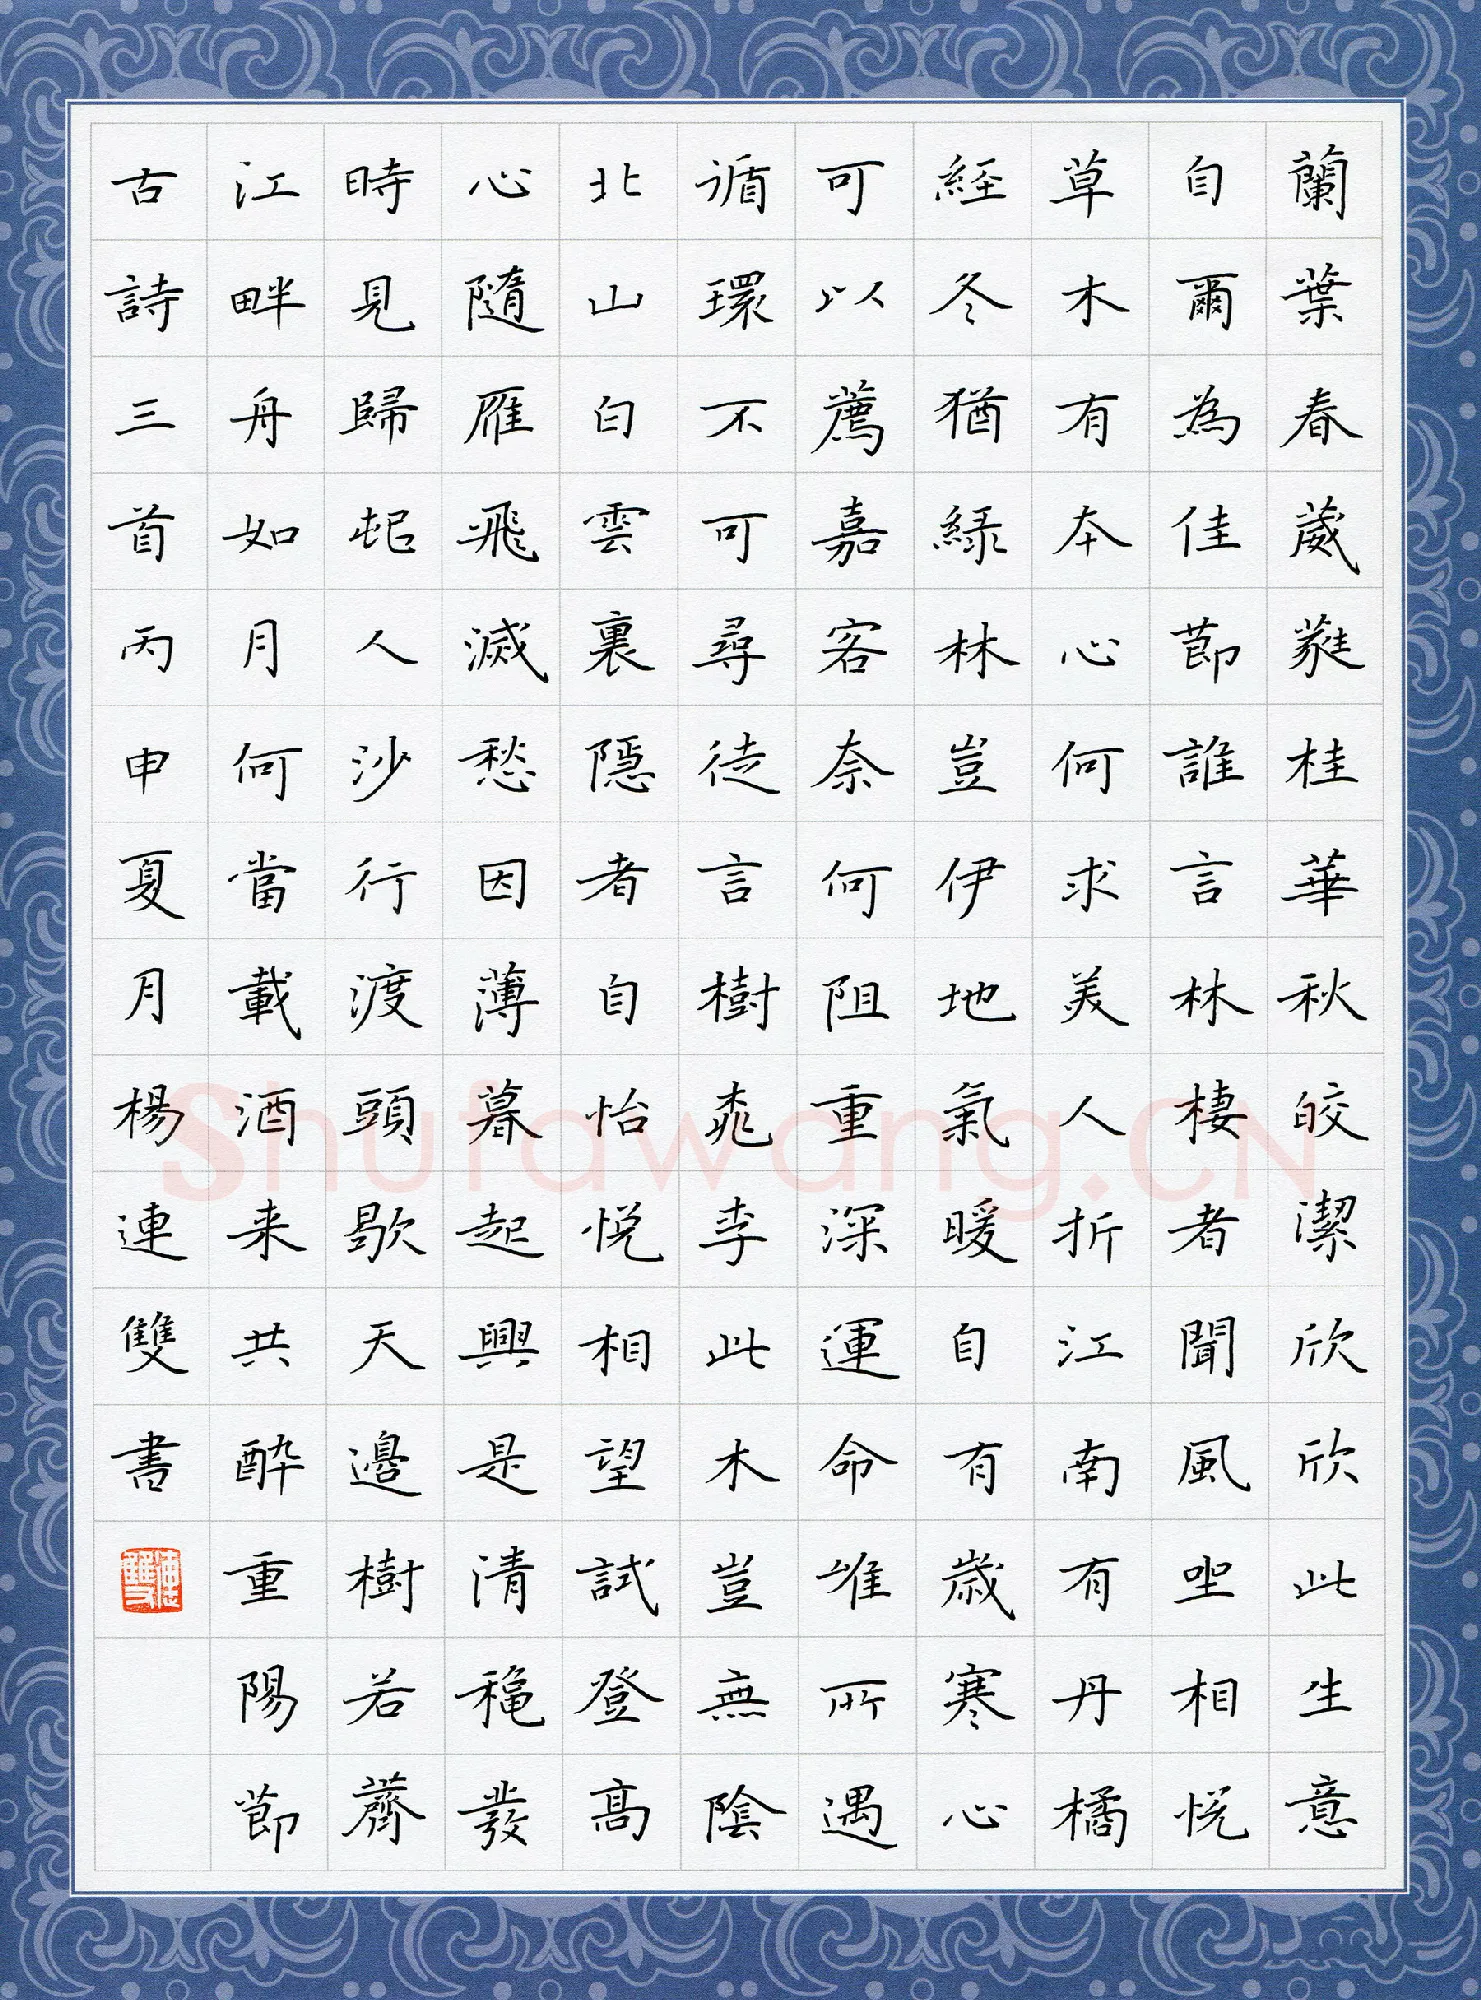 蘭葉春葳蕤桂華秋皎潔欣欣此生意
自爾為佳節誰言林棲者聞風坐相悅
草木有本心何求美人折江南有丹橘
経冬猶緑林豈伊地氣暖自有歲寒心
可以薦嘉客奈何阻重深運命唯所遇
循環不可尋徒言樹桃李此木豈無陰
北山白雲裏隱者自怡悅相望試登高
心隨雁飛滅愁因薄暮起興是清秋發
時見歸村人沙行渡頭歇天邊樹若薺
江畔舟如月何當載酒来共醉重陽節
古詩三首丙申夏月楊連雙書
連雙
Shufawang.CN